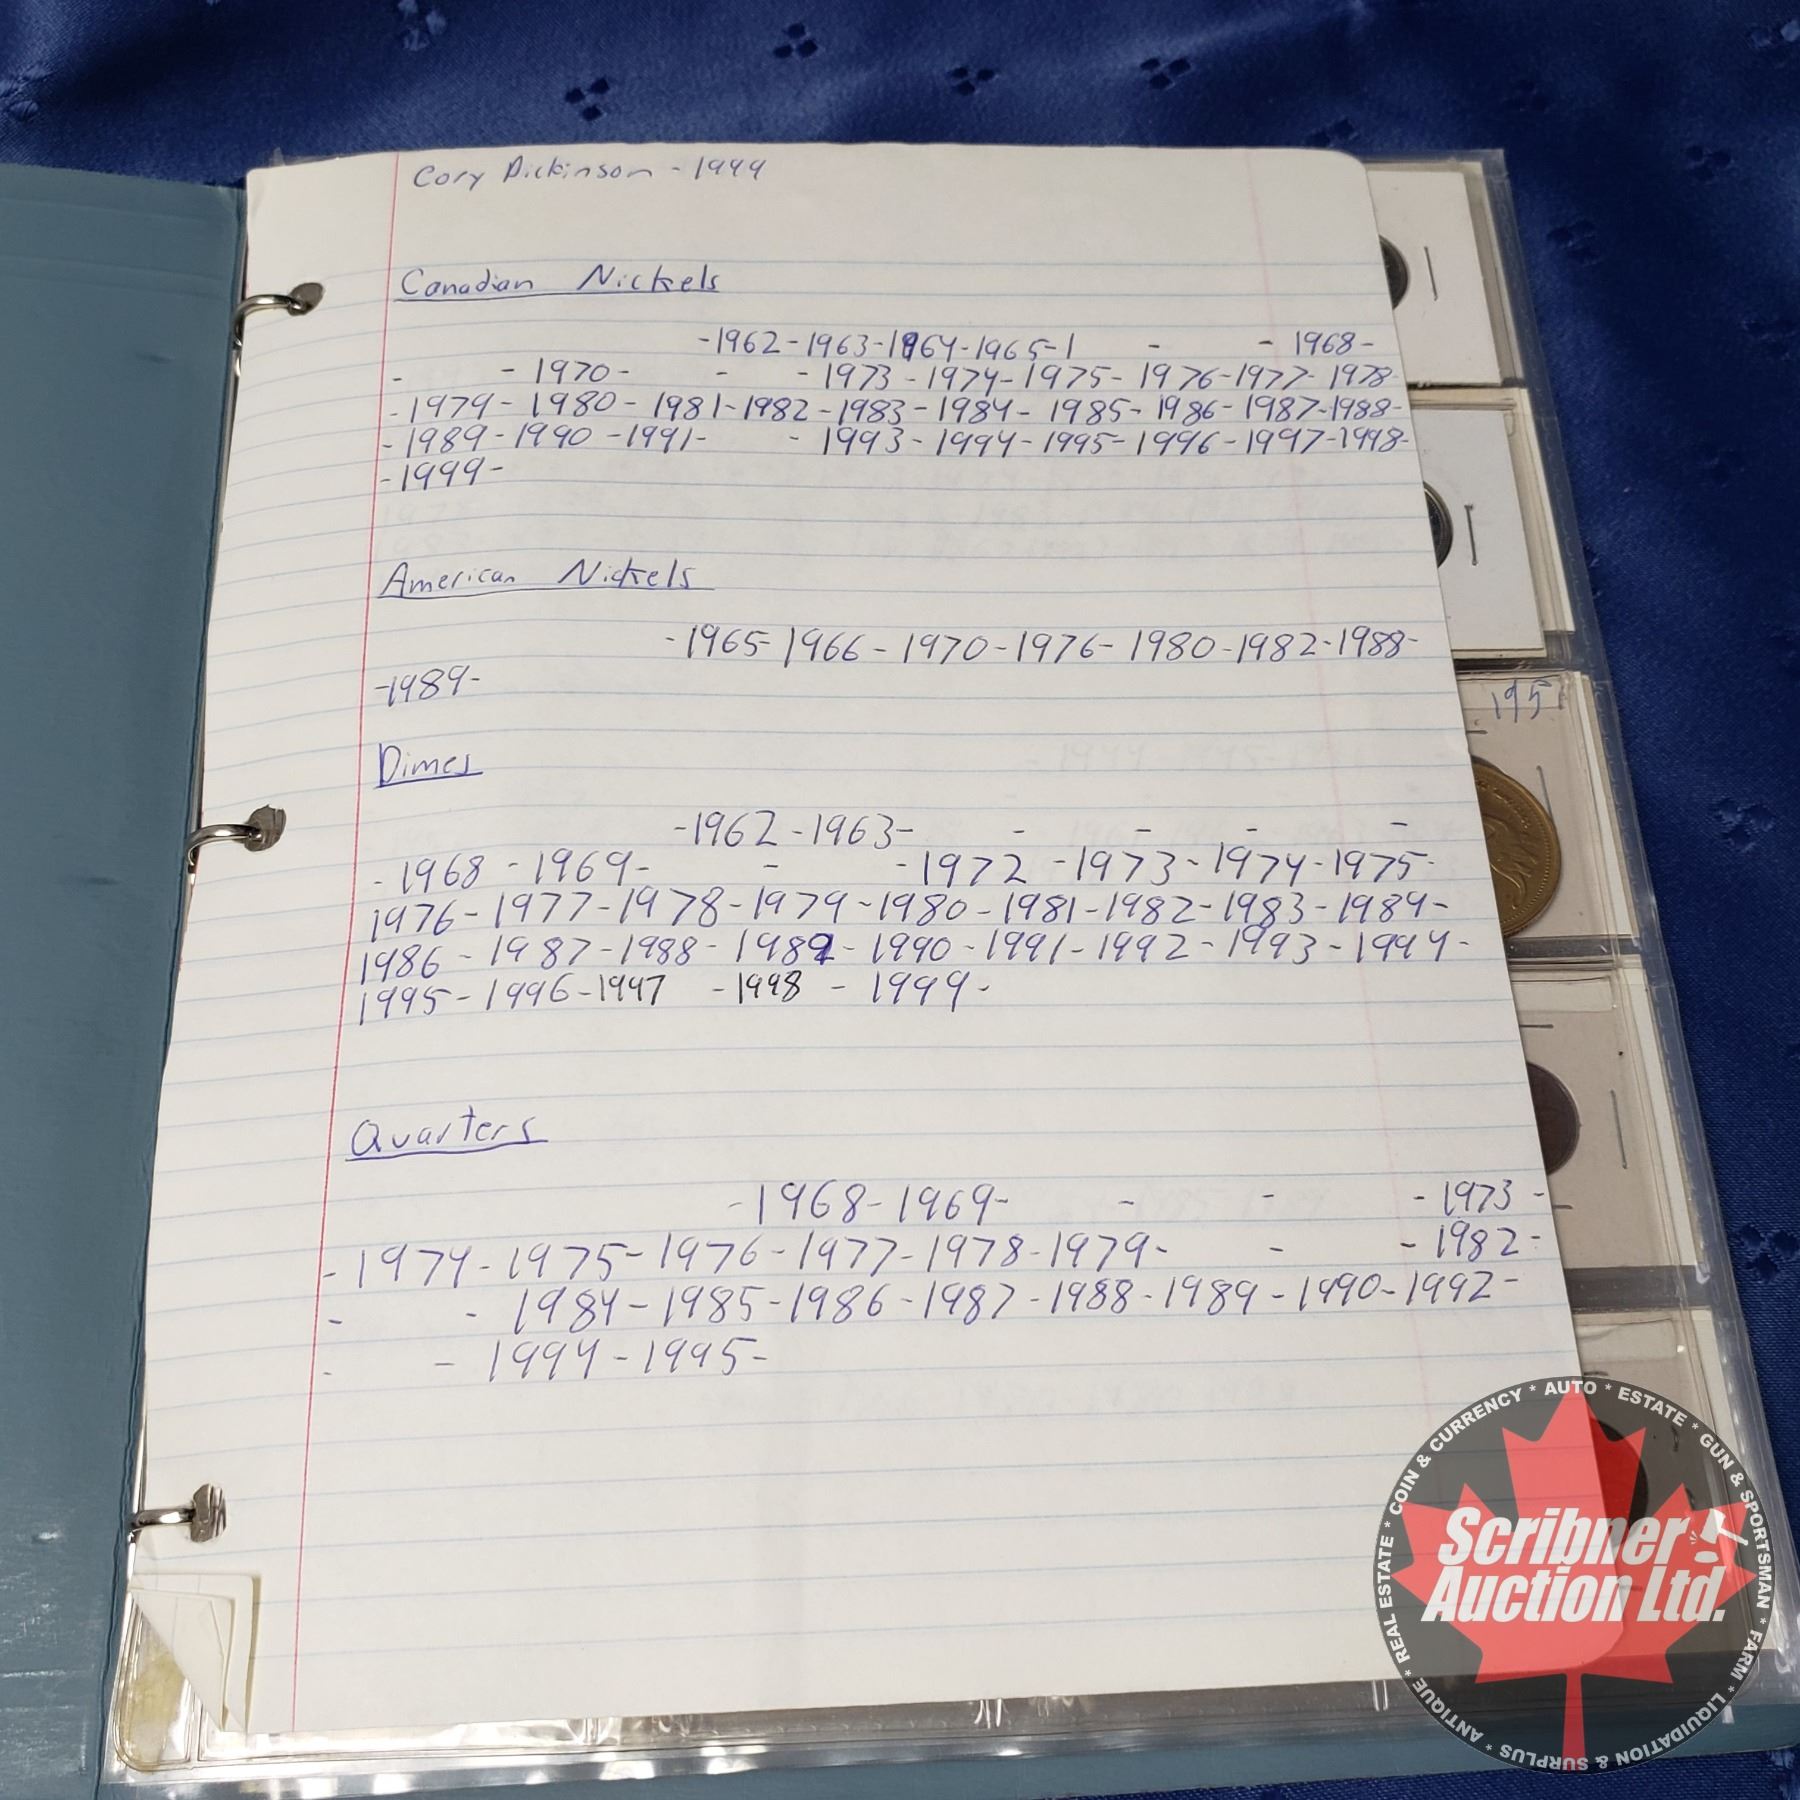 Cory Dickinson - 1999
Canadian Nickels
-1962-1963-1964-1965-1 - - 1968-
- - 1970- - -1973-1974-1975-1976-1977-1978-
-1979-1980-1981-1982-1983-1984-1985-1986-1987-1988-
-1989-1990-1991- -1993-1994-1995-1996-1997-1998-
-1999-
American Nickels
-1965-1966-1970-1976-1980-1982-1988-
-1989-
Dimes
-1962-1963- - - - -
-1968-1969- - -1972-1973-1974-1975-
1976-1977-1978-1979-1980-1981-1982-1983-1984-
1986-1987-1988-1989-1990-1991-1992-1993-1994-
1995-1996-1997 -1998 - 1999-
Quarters
-1968-1969- - - -1973-
-1974-1975-1976-1977-1978-1979- - -1982-
- -1984-1985-1986-1987-1988-1989-1990-1992-
- -1994-1995-
195
Scribner
Auction Ltd.
* COIN & CURRENCY * AUTO * ESTATE * GUN & SPORTSMAN * FARM * LIQUIDATION & SURPLUS * ANTIQUE * REAL ESTATE